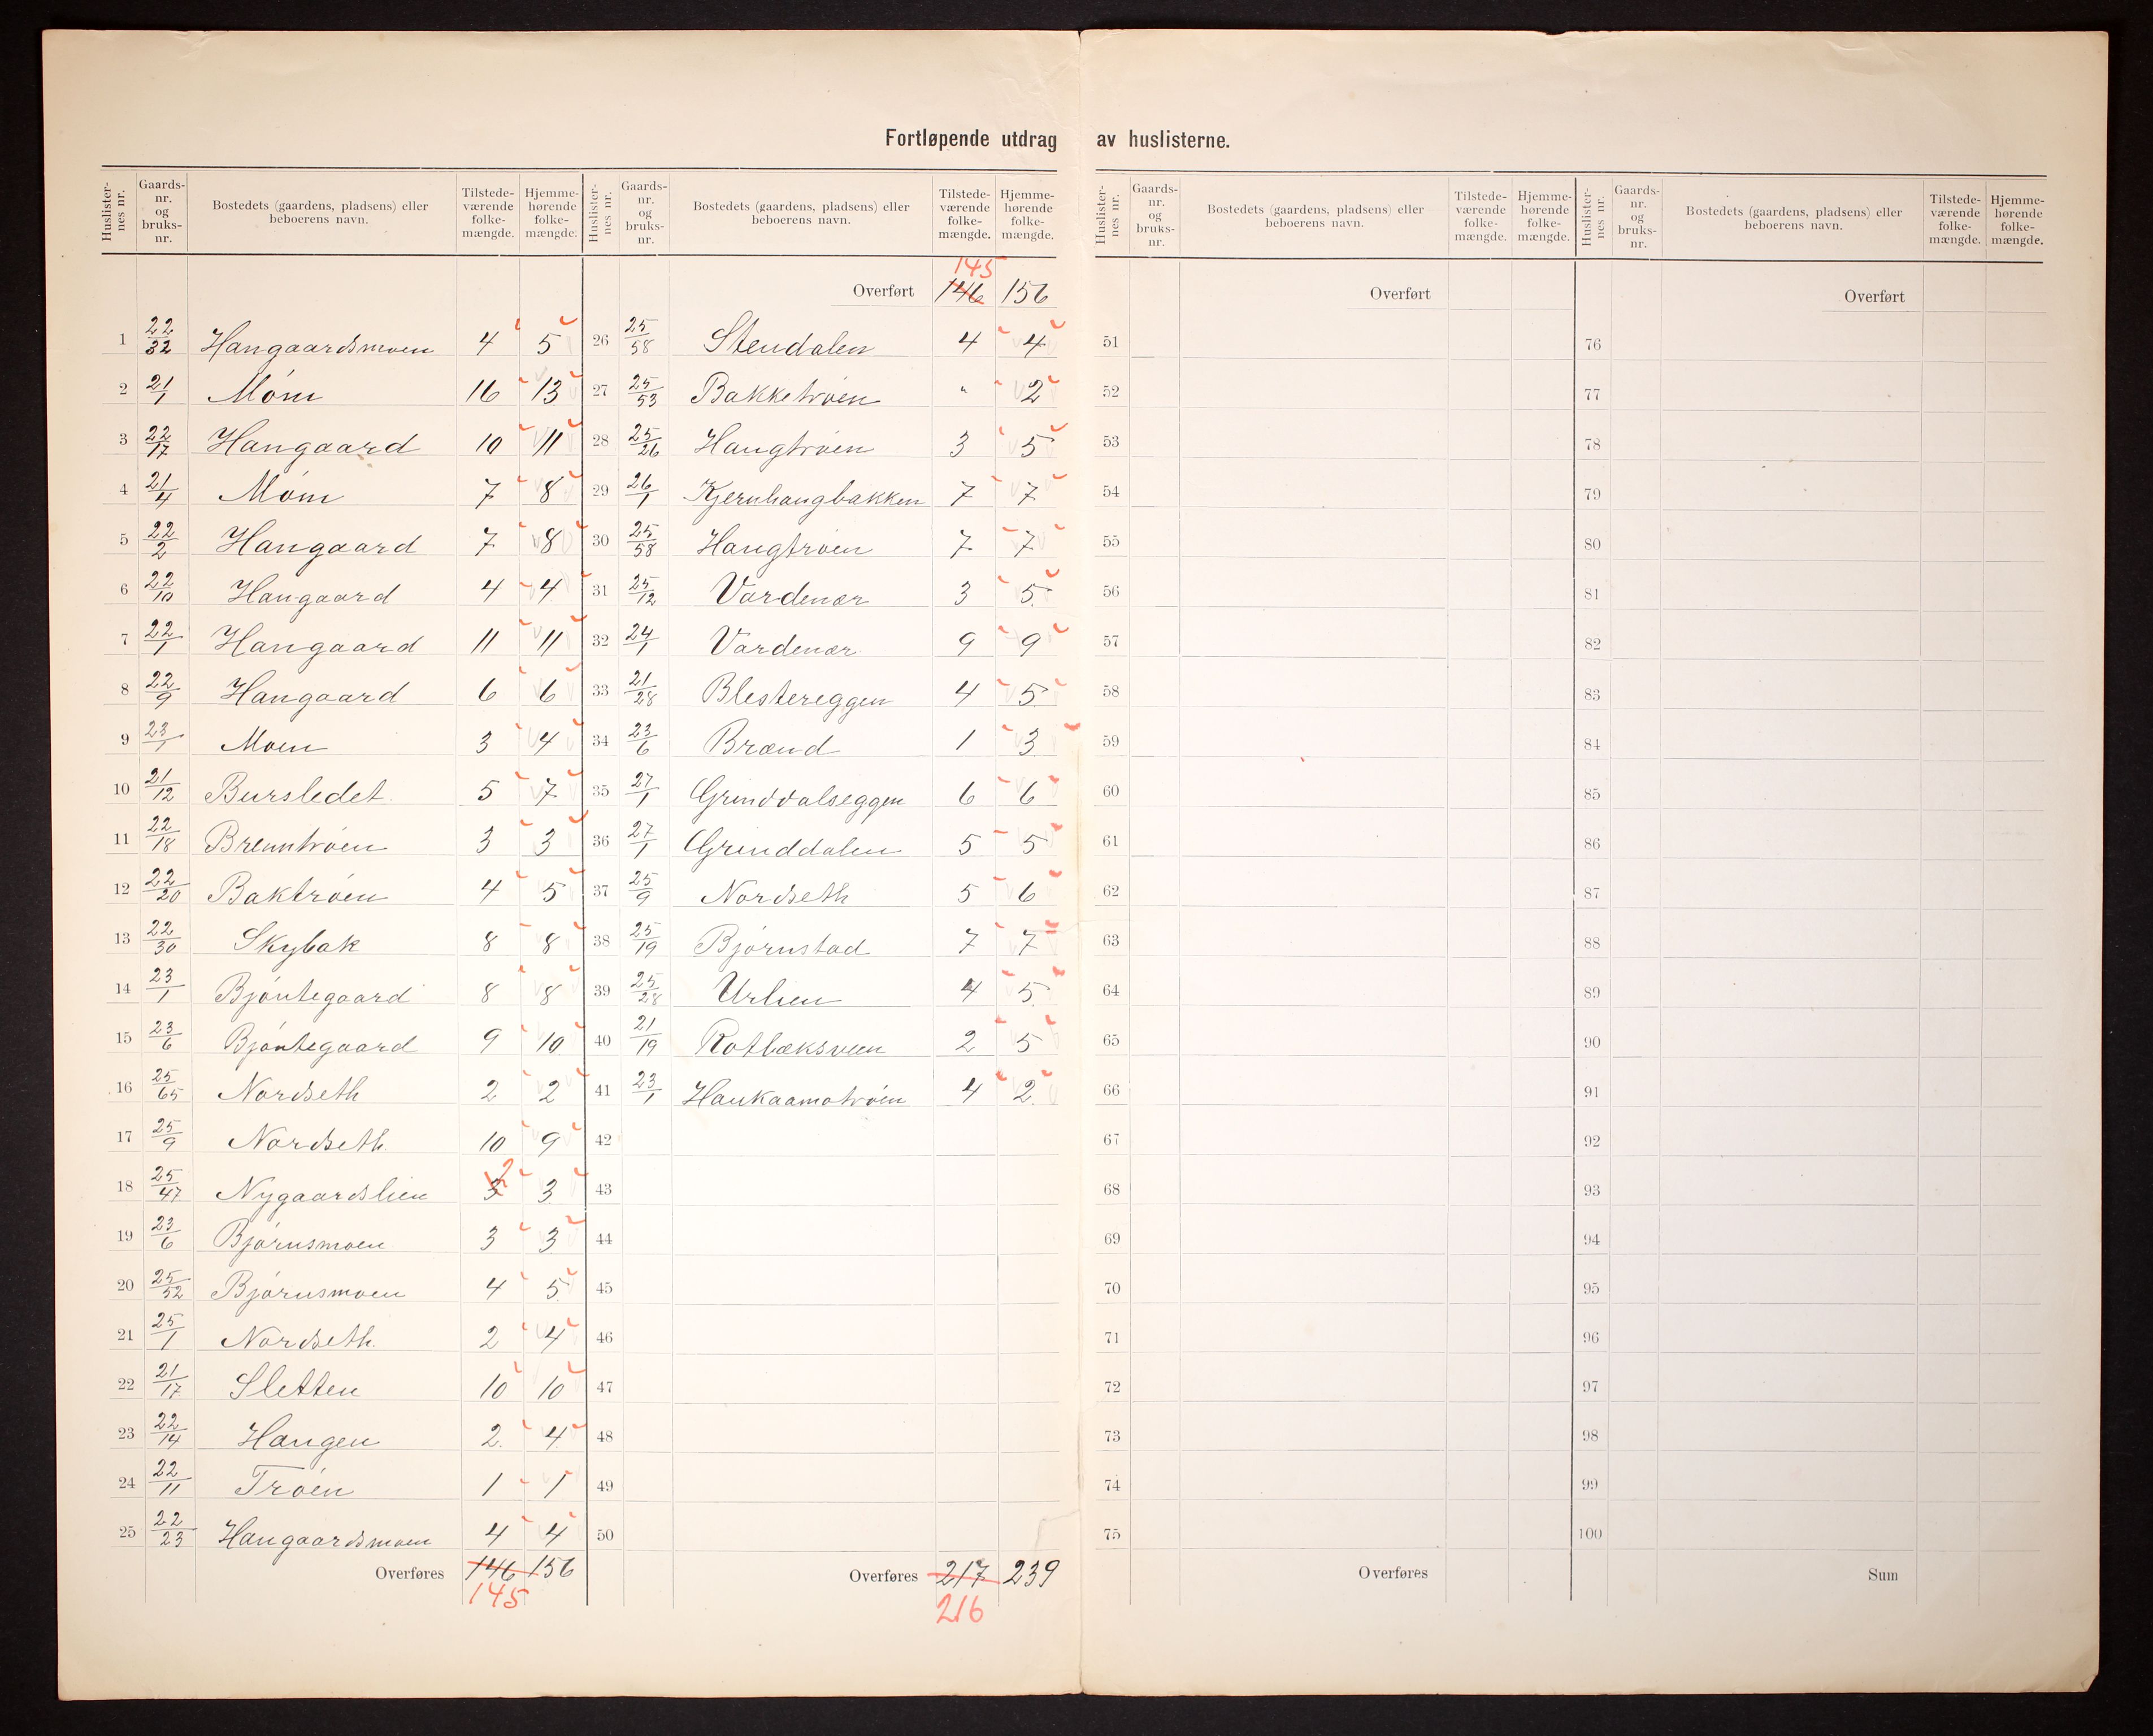 Fortløpende utdrag av huslisterne.
Huslisternes nr. Gaards-nr. og bruks-nr. Bostedets (gaardens, pladsens) eller beboerens navn. Tilstedeværende folkemængde. Hjemmehørende folkemængde. Huslisternes nr. Gaards-nr. og bruks-nr. Bostedets (gaardens, pladsens) eller beboerens navn. Tilstedeværende folkemængde. Hjemmehørende folkemængde.
145
Overført 146 156
1 22/32 Haugaardsmoen 4 5
2 21/1 Móm 16 13
3 22/17 Haugaard 10 11
4 21/4 Móm 7 8
5 22/2 Haugaard 7 8
6 22/10 Haugaard 4 4
7 22/1 Haugaard 11 11
8 22/9 Haugaard 6 6
9 23/1 Moen 3 4
10 21/12 Bursledet 5 7
11 22/18 Brenntróen 3 3
12 22/20 Baktróen 4 5
13 22/30 Skybak 8 8
14 23/1 Bjóntegaard 8 8
15 23/6 Bjóntegaard 9 10
16 25/65 Nordseth 2 2
17 25/9 Nordseth 10 9
18 25/47 Nygaardslien 3 2 3
19 23/6 Bjórnsmoen 3 3
20 25/52 Bjórnsmoen 4 5
21 25/1 Nordseth 2 4
22 21/17 Sletten 10 10
23 22/14 Haugen 2 4
24 22/11 Tróen 1 1
25 22/23 Haugaardsmoen 4 4
Overføres 146 156
145
26 25/58 Stendalen 4 4
27 25/53 Bakketróen " 2
28 25/26 Haugtróen 3 5
29 26/1 Kjernhaugbakken 7 7
30 25/58 Haugtróen 7 7
31 25/12 Vardenær 3 5
32 24/1 Vardenær 9 9
33 21/28 Blestereggen 4 5
34 23/6 Brænd 1 3
35 27/1 Grinddalseggen 6 6
36 27/1 Grinddalen 5 5
37 25/9 Nordseth 5 6
38 25/19 Bjórnstad 7 7
39 25/28 Urlien 4 5
40 21/19 Rotbæksveen 2 5
41 23/1 Haukaamotróen 4 2
42
43
44
45
46
47
48
49
50
Overføres 217 239
216
Huslisternes nr. Gaards-nr. og bruks-nr. Bostedets (gaardens, pladsens) eller beboerens navn. Tilstedeværende folkemængde. Hjemmehørende folkemængde. Huslisternes nr. Gaards-nr. og bruks-nr. Bostedets (gaardens, pladsens) eller beboerens navn. Tilstedeværende folkemængde. Hjemmehørende folkemængde.
Overført Overført
51 76
52 77
53 78
54 79
55 80
56 81
57 82
58 83
59 84
60 85
61 86
62 87
63 88
64 89
65 90
66 91
67 92
68 93
69 94
70 95
71 96
72 97
73 98
74 99
75 100
Overføres Sum